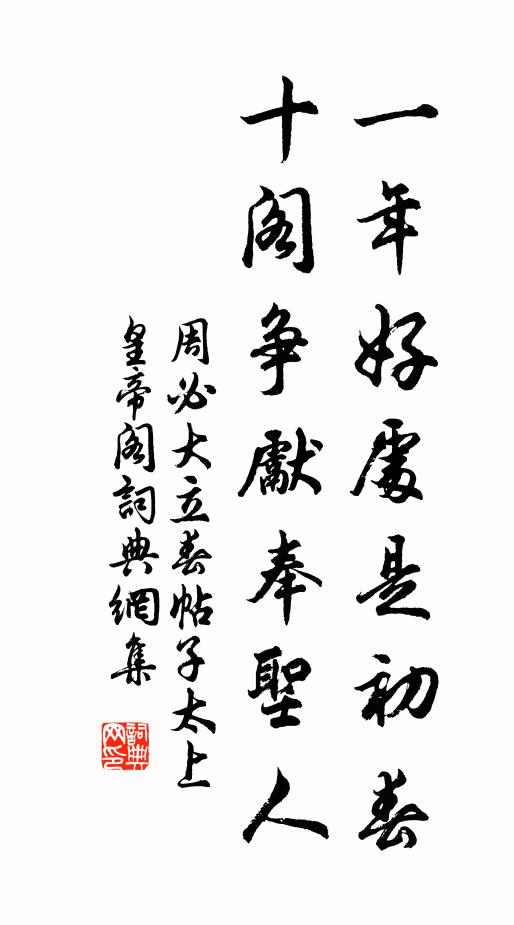 一年好處是初春
十阁争獻奉聖人
周必大立春帖子太上
皇帝阁詞典網集
詞典网印